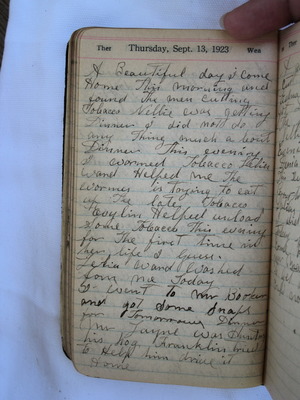 Ther Thursday, Sept. 13, 1923 Wea
A Beautiful day I come
Home This morning and
found the men cutting
Tobacco Nettie was getting
Dinner I did not do
any Thing much a bout
Dinner This evening
I wormed Tobacco Letia
Ward Helped me The
wormes is trying to eat
up The late Tobacco
Evylin Helped unload
some Tobacco This evening
for The first time in
her life I guess.
Letia Ward Washed
fore me Today
I went To mr
and got Some Snaps
for Tomorrows Dinner
mr Layne was
his hog Franklin tried
to Help him drive it
Home